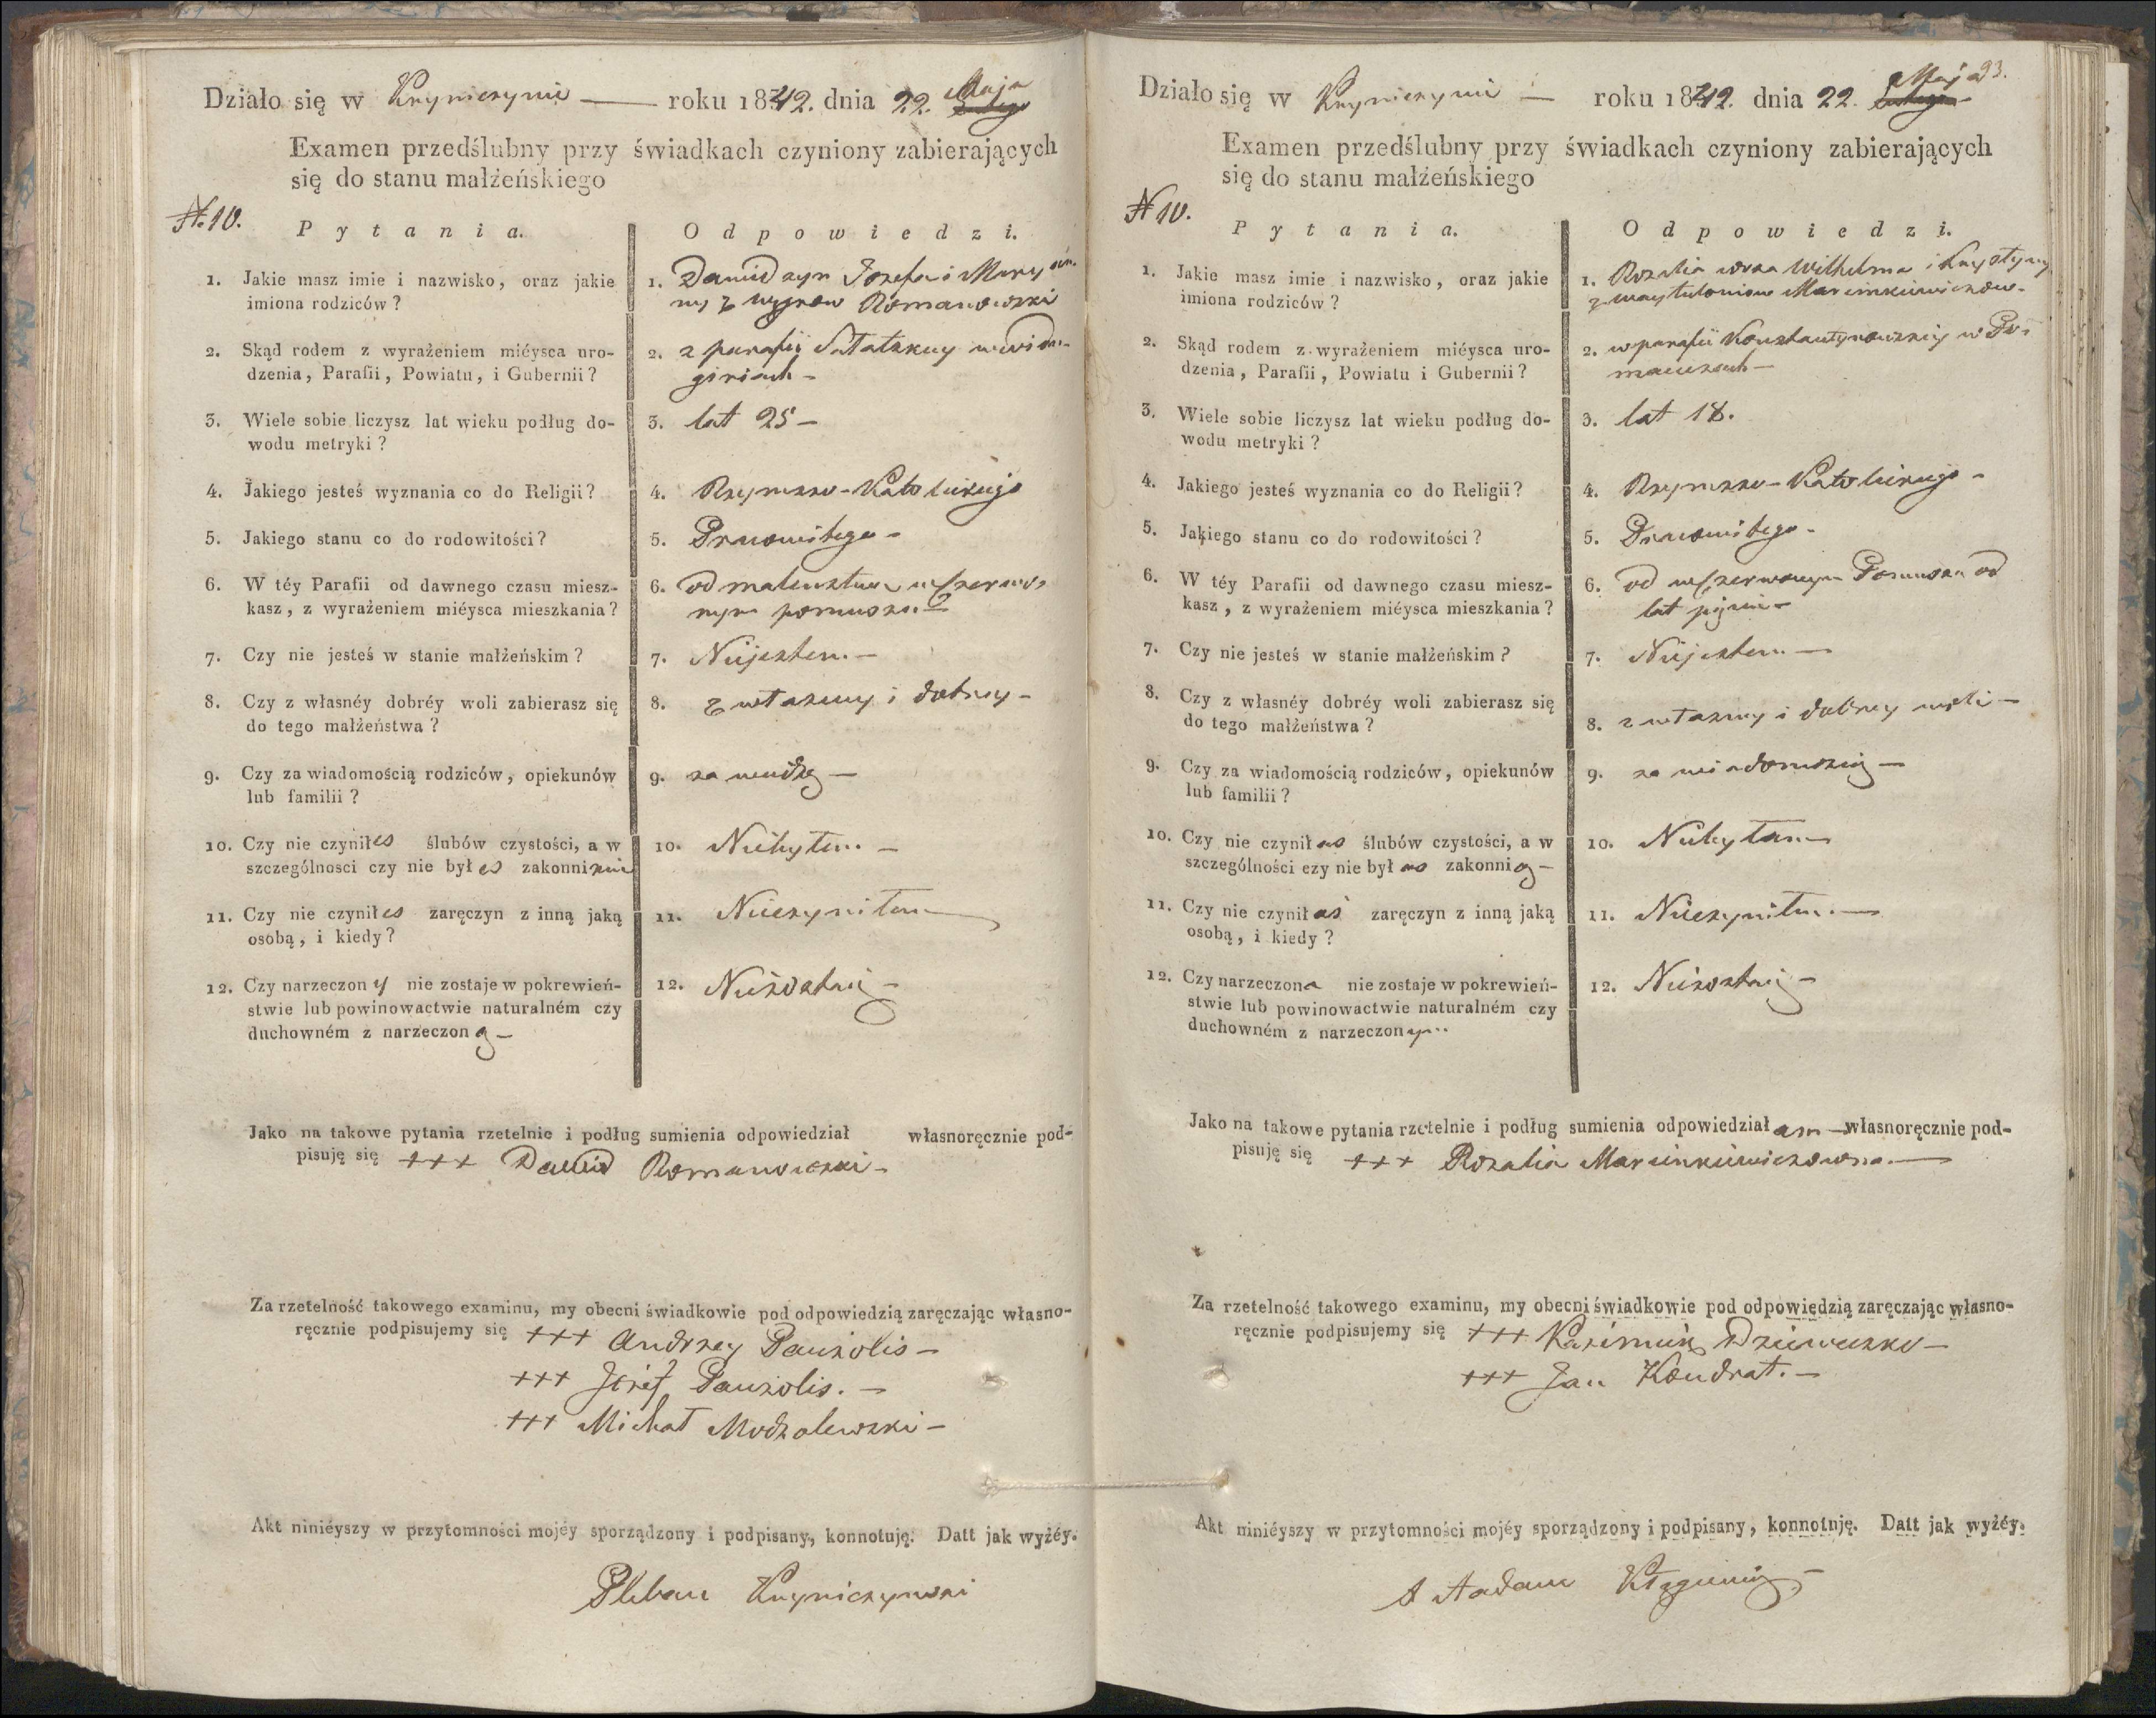 Działo się w Kryniczynie — roku 1842. dnia 22. Maja
Examen przedślubny przy świadkach czyniony zabierających
się do stanu małżeńskiego
N. 10.
Pytania.
Odpowiedzi.
1. Jakie masz imie i nazwisko, oraz jakie
imiona rodziców?
1. Dawid syn Jozefa i
z Romanowski
2. Skąd rodem z wyrażeniem miéysca uro-
dzenia, Parafii, Powiatu, i Gubernii?
2. z parafii
3. Wiele sobie liczysz lat wieku podług do-
wodu metryki?
3. lat 25 —
4. Jakiego jesteś wyznania co do Religii?
4. Rzymsko-Katolickiego
5. Jakiego stanu co do rodowitości?
5. Prawowitego -
6. W téy Parafii od dawnego czasu miesz-
kasz, z wyrażeniem miéysca mieszkania?
6. od
7. Czy nie jesteś w stanie małżeńskim?
7. Niejestem. —
8. Czy z własnéy dobréy woli zabierasz się
do tego małżeństwa?
8. z własney i dobrey —
9. Czy za wiadomością rodziców, opiekunów
lub familii?
9. za wiedzą —
10. Czy nie czyniłes ślubów czystości, a w
szczególnosci czy nie był es zakonnikiem
10. Niebyłem. —
11. Czy nie czyniłes zaręczyn z inną jaką
osobą, i kiedy?
11. Nieczyniłem
12. Czy narzeczony nie zostaje w pokrewień-
stwie lub powinowactwie naturalném czy
duchowném z narzeczoną —
12. Niezostaię —
Jako na takowe pytania rzetelnie i podług sumienia odpowiedział własnoręcznie pod-
pisuję się +++ Dawid Romanowski -
Za rzetelność takowego examinu, my obecni świadkowie pod odpowiedzią zaręczając własno-
ręcznie podpisujemy się +++ Andrzey Pauzolis —
+++ Józef Pauzolis. —
+++ Michał Modzolewski —
Akt niniéyszy w przytomności mojéy sporządzony i podpisany, konnotuję. Datt jak wyżéy.
Pleban Kryniczynski
93.
Działo się w Kryniczynie — roku 1842. dnia 22. Maja
Examen przedślubny przy świadkach czyniony zabierających
się do stanu małżeńskiego
N 10.
Pytania.
Odpowiedzi.
1. Jakie masz imie i nazwisko, oraz jakie
imiona rodziców?
1. Rozalia corka Wilhelma i Krystyny
z Marcinkiewiczow -
2. Skąd rodem z wyrażeniem miéysca uro-
dzenia, Parafii, Powiatu i Gubernii?
2. w parafii Konstantynowskiey w
3. Wiele sobie liczysz lat wieku podług do-
wodu metryki?
3. lat 18.
4. Jakiego jesteś wyznania co do Religii?
4. Rzymsko-Katolickiego -
5. Jakiego stanu co do rodowitości?
5. Prawowitego -
6. W téy Parafii od dawnego czasu miesz-
kasz, z wyrażeniem miéysca mieszkania?
6. od
lat
7. Czy nie jesteś w stanie małżeńskim?
7. Niejestem —
8. Czy z własnéy dobréy woli zabierasz się
do tego małżeństwa?
8. z własney i dobrey woli —
9. Czy za wiadomością rodziców, opiekunów
lub familii?
9. za wiadomoscią —
10. Czy nie czynił as ślubów czystości, a w
szczególności czy nie był as zakonnicą —
10. Niebyłam
11. Czy nie czyniłaś zaręczyn z inną jaką
osobą, i kiedy?
11. Nieczyniłam. —
12. Czy narzeczona nie zostaje w pokrewień-
stwie lub powinowactwie naturalném czy
duchowném z narzeczonym.
12. Niezostaię —
Jako na takowe pytania rzetelnie i podług sumienia odpowiedział am — własnoręcznie pod-
pisuję się +++ Rozalia Marcinkiewiczowna. —
Za rzetelność takowego examinu, my obecni świadkowie pod odpowiedzią zaręczając własno-
ręcznie podpisujemy się +++ Kazimierz
+++ Jan Kondrat. —
Akt niniéyszy w przytomności mojéy sporządzony i podpisany, konnotuję. Datt jak wyżéy.